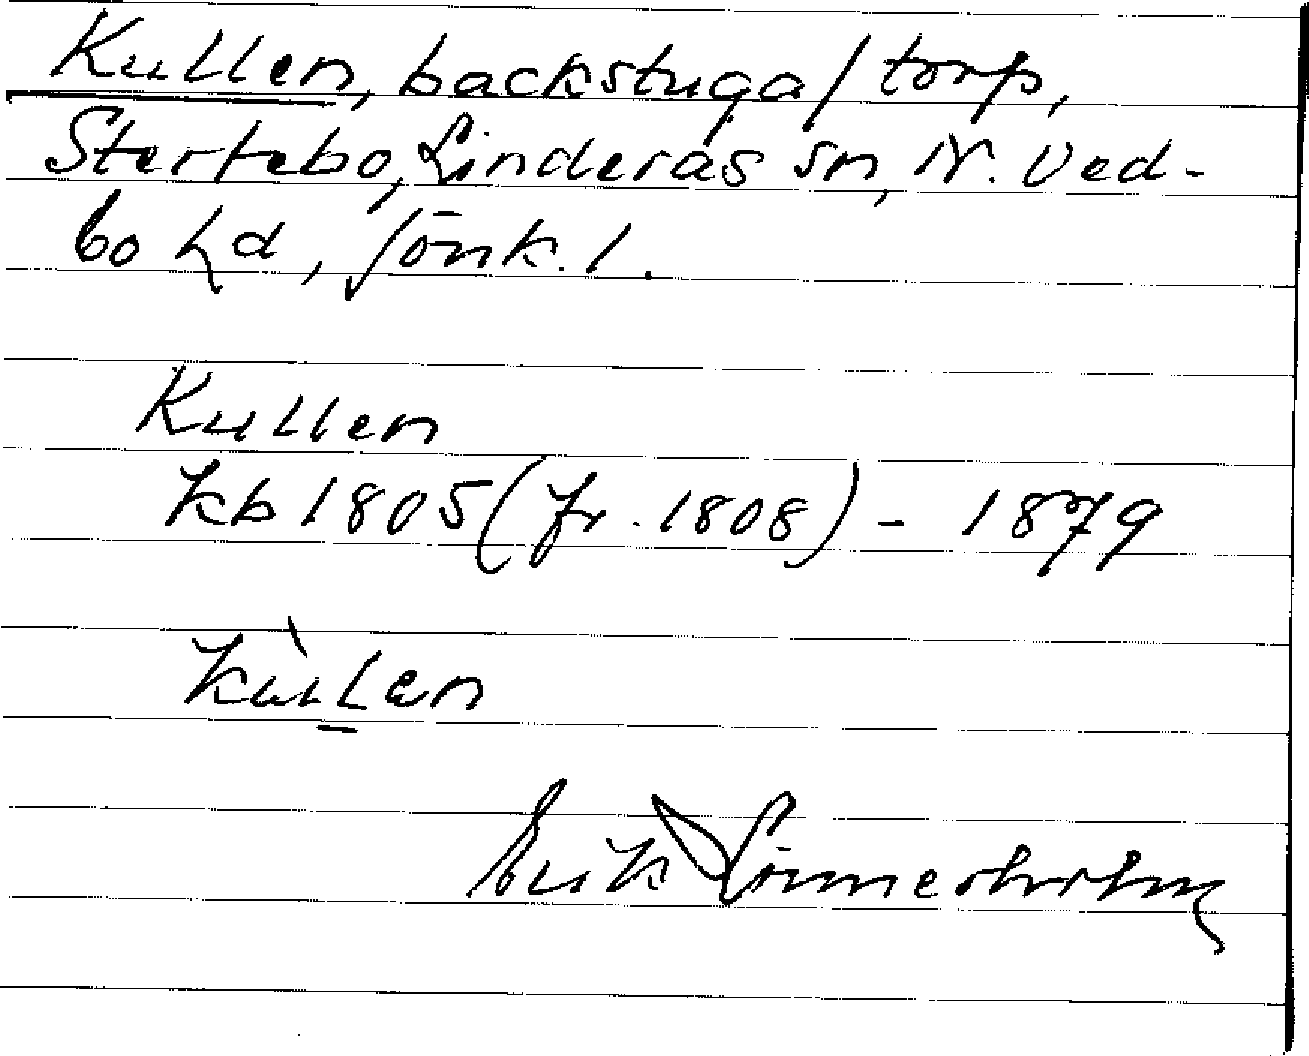 Kullen, backstuga/torp,
Stertebo, Linderås sn, N. Ved-
bo hd, Jönk. l.
Kullen
kb 1805 (fr. 1808) - 1879
kùllen
Erik